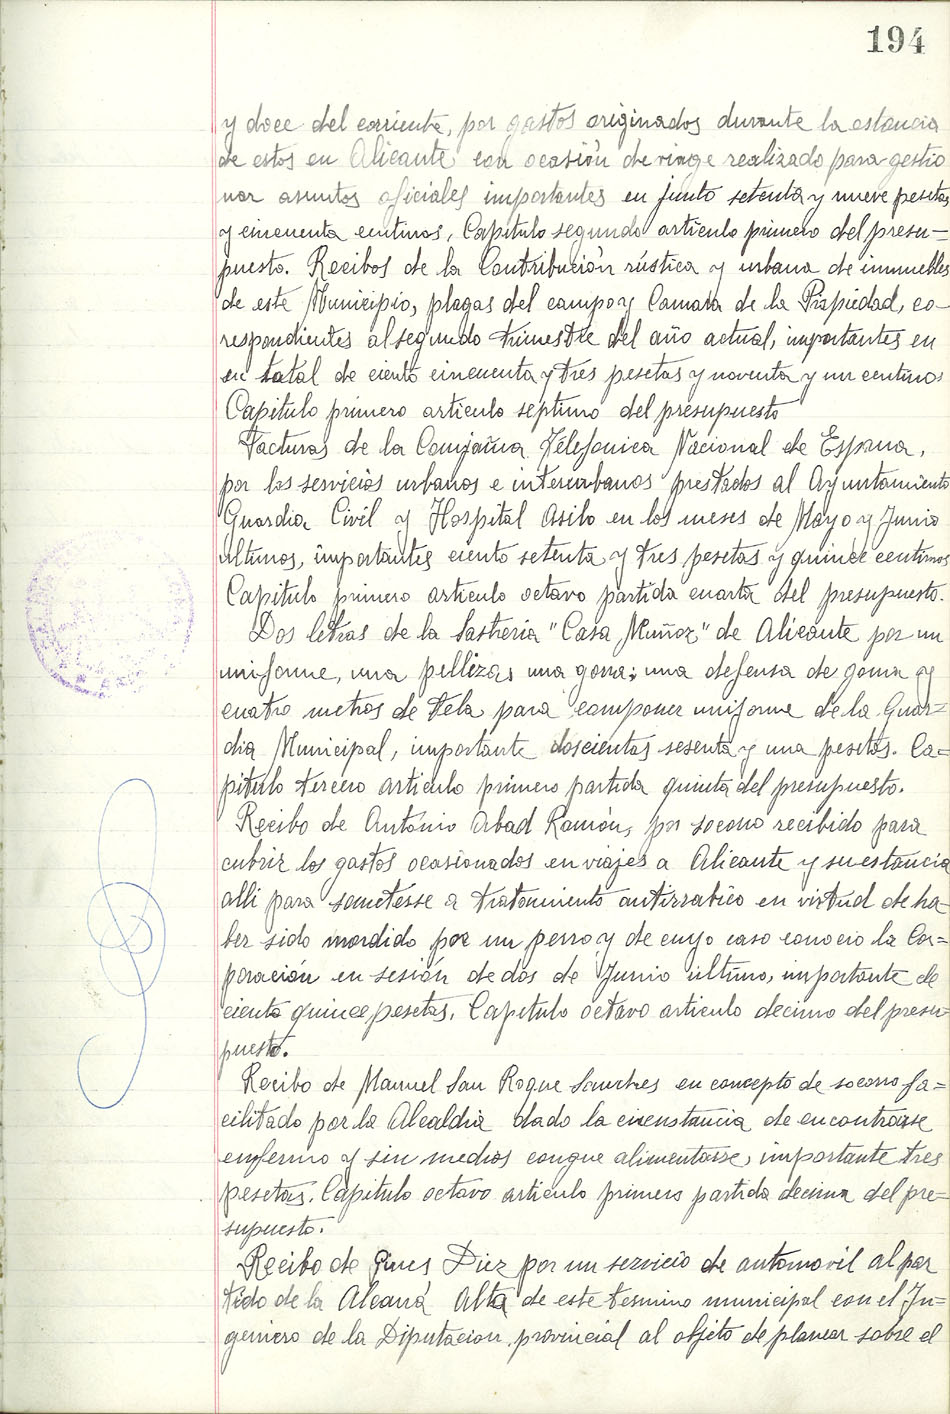 194
y doce del corriente, por gastos originados durante la estancia
de estos en Alicante con ocasión de viage realizado para gestio
nar asuntos oficiales importantes en junto setenta y nueve pesetas
y cincuenta centimos, Capitulo segundo articulo primero del presu=
puesto. Recibos de la Contribución rústica y urbana de inmuebles
de este Municipio, plagas del campo y Camara de la Propiedad, co-
rrespondientes al segundo trimestre del año actual, importantes en
su total de ciento cincuenta y tres pesetas y noventa y un centimos
Capitulo primero articulo septimo del presupuesto
Facturas de la Compañia Telefonica Nacional de España,
por los servicios urbanos e interurbanos prestados al Ayuntamiento
Guardia Civil y Hospital Asilo en los meses de Mayo y Junio
ultimos, importantes ciento setenta y tres pesetas y quince centimos
Capitulo primero articulo octavo partida cuarta del presupuesto.
Dos letras de la Sastreria "Casa Muñoz" de Alicante por un
uniforme, una pelliza, una gorra; una defensa de goma y
cuatro metros de tela para componer uniforme de la Guar=
dia Municipal, importante doscientas sesenta y una pesetas. Ca=
pitulo tercero articulo primero partida quinta del presupuesto.
Recibo de Antonio Abad Ramón, por socorro recibido para
cubrir los gastos ocasionados en viajes a Alicante y su estancia
alli para sometesse a tratamiento antirrabico en virtud de ha-
ber sido mordido por un perro y de cuyo caso conocio la Cor=
poración en sesión de dos de Junio ultimo, importante de
ciento quince pesetas. Capitulo octavo articulo decimo del presu=
puesto.
Recibo de Manuel San Roque Sanches en concepto de socorro fa=
cilitado por la Alcaldia dado la cicunstancia de encontrarse
enfermo y sin medios conque alimentarse, importante tres
pesetas. Capitulo octavo articulo primero partida decima del pre=
supuesto.
Recibo de Gines Diez por un servicio de automovil al par
tido de la Alcaná Alta de este termino municipal con el In=
geniero de la Diputacion provincial al objeto de planear sobre el